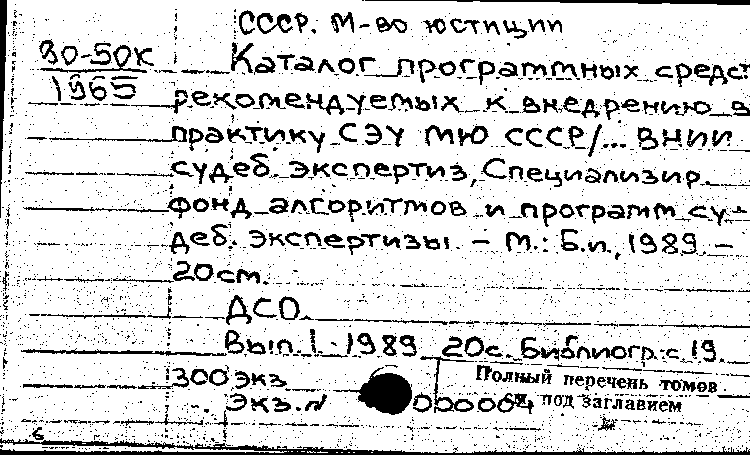 СССР. М-во юстиции
80-50К
1965
Каталог программных средст
рекомендуемых к внедрению в
практику СЭУ МЮ СССР/... ВНИИ
судеб. экспертиз, Специализир.
фонд алгоритмов и программ су-
деб. экспертизы. – М.: Б.и., 1989. –
20см.
ДСП.
Вып. 1 - 1989 20с. Библиогр.: с 19.
300 экз
Экз. № 000064
Полный перечень томов
см. под заглавием
6